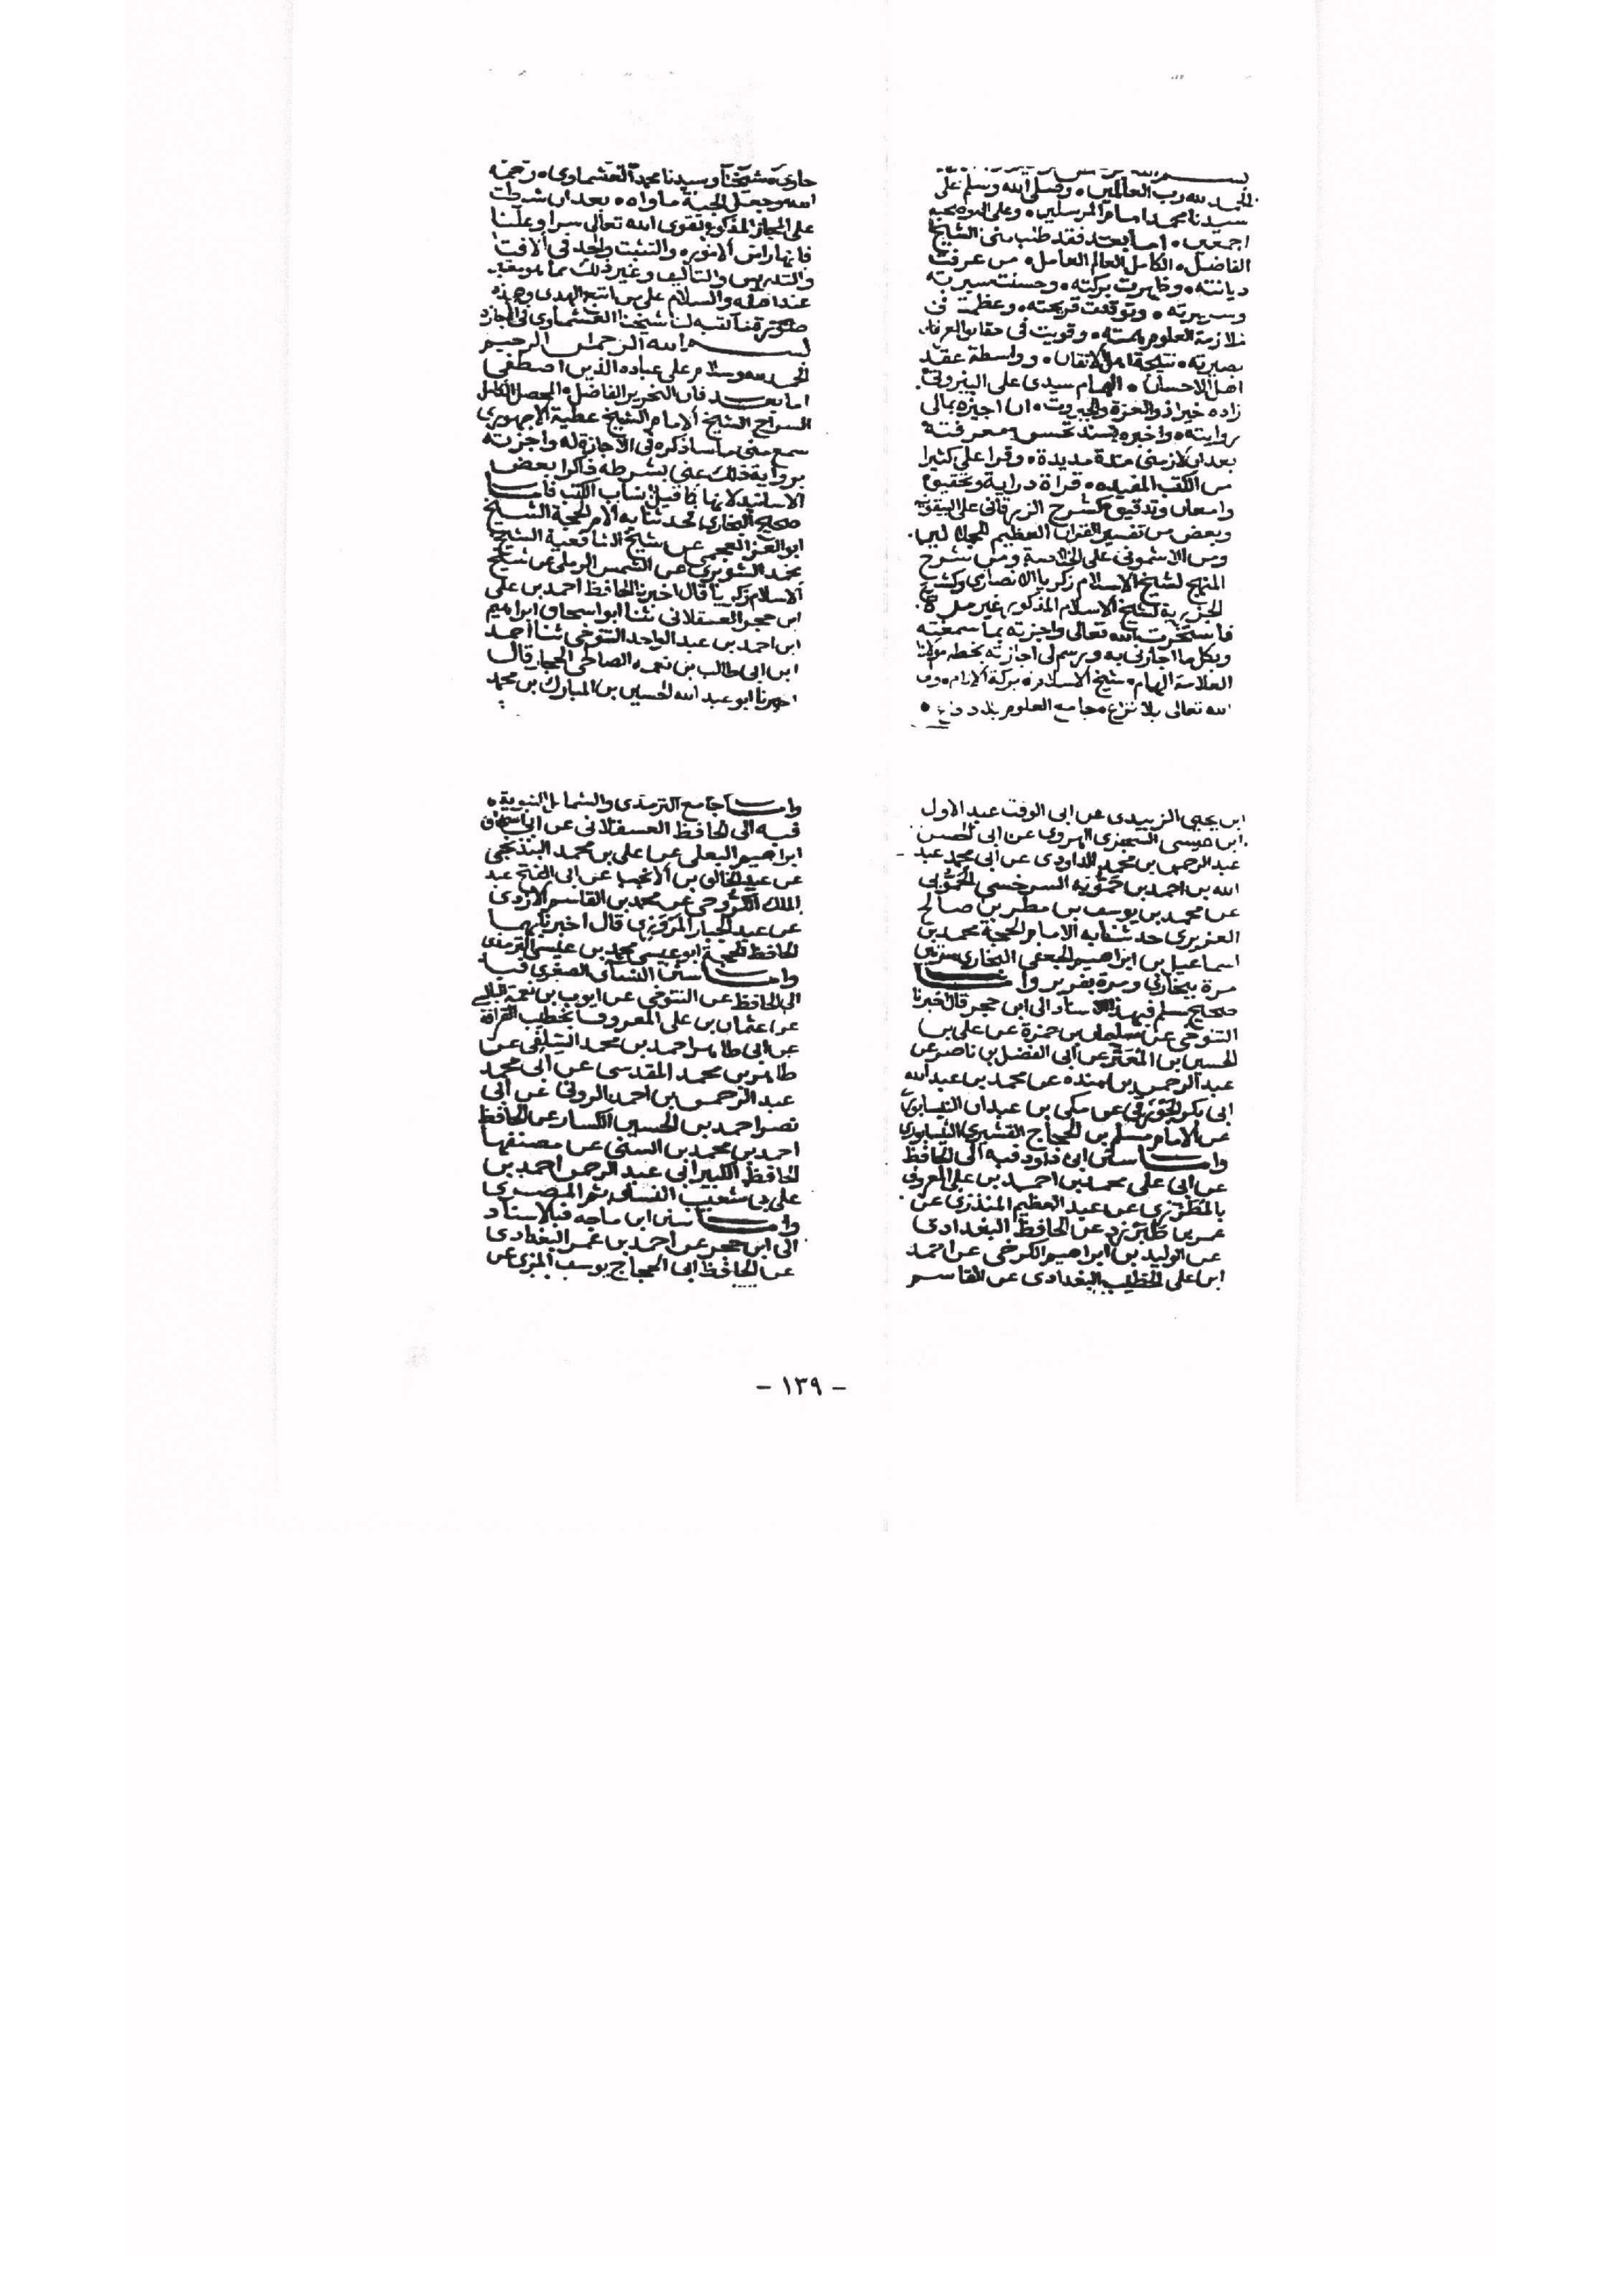 بسم الله
الحمد لله رب العالمين، وصلى الله وسلم على
سيدنا محمد امام المرسلين، وعلى اله وصحبه
اجمعين، اما بعد فقد طلب منى الشيخ
الفاضل، الكامل العالم العامل، من عرفت
ديانته، وظهرت بركته، وحسنت سيرته
وسريرته، وتوقدت قريحته، وعظمت فى
ملازمة العلوم همته، وقويت فى حقايق العرفان
بصيرته، نتيجة اهل الاتقان، وواسطة عقد
اهل الاحسان، الهمام سيدى على البيروتى
زاده خيرا ذو العزة والجبروت، ان اجيزه بمالى
روايته، واخبره بسند تحسن معرفته
بعد ان لازمنى مدة مديدة، وقرا على كثيرا
من الكتب المفيده، قراة دراية وتحقيق
وامعان وتدقيق كشرح الزرقانى على البيقونيه
وبعض من تفسير القران العظيم للجلالين،
ومن الاشمونى على الخلاصة ومن شرح
المنهج لشيخ الاسلام زكريا الانصارى وكشرح
الجزرية لشيخ الاسلام المذكور غير مرة،
فاستخرت الله تعالى واجزته بما سمعته
وبكل ما اجازنى به ورسم لى اجازته بخطه مولانا
العلامة الهمام، شيخ الاسلام، بركة الانام،
الله تعالى بلا نزاع، جامع العلوم بلا دفاع،
حاوى، شيخنا وسيدنا محمد العشماوى، رحمه
الله وجعل الجنة ماواه، بعد ان شرطت
على المجاز المذكور تقوى الله تعالى سرا وعلنا
فانها راس الامور، والتثبت والجد فى الافتا
والتدريس والتاليف وغير ذلك مما هو معتبر
عند اهله والسلام على من اتبع الهدى وهذه
صورة ما كتبه لنا شيخنا العشماوى فى اجازة
بسم الله الرحمن الرحيم
الحمد لله وسلام على عباده الذين اصطفى
اما بعد فان النحرير الفاضل، المحصل الكامل
السراج الشيخ الامام الشيخ عطية الاجهورى
سمع منى ما ساذكره فى الاجازة له واجزته
برواية ذلك عنى بشرطه ذاكرا بعض
الاسانيد لانها كما قيل انساب الكتب فاما
صحيح البخارى فحدثنا به الامام الحجة الشيخ
ابو العز العجمى عن شيخ الشافعية الشيخ
محمد الشوبرى عن الشمس الرملى عن شيخ
الاسلام زكريا قال اخبرنا الحافظ احمد بن على
ابن حجر العسقلانى ثنا ابو اسحاق ابراهيم
ابن احمد بن عبد الواحد التنوخى ثنا احمد
ابن ابى طالب بن نعمه الصالحى الحجار قال
اخبرنا ابو عبد الله الحسين بن المبارك بن محمد
ابن يحيى الزبيدى عن ابى الوقت عبد الاول
ابن عيسى السجزى الهروى عن ابى الحسن
عبد الرحمن بن محمد الداودى عن ابى محمد عبد
الله بن احمد بن حموية السرخسى الحموى
عن محمد بن يوسف بن مطر بن صالح
الفربرى حدثنا به الامام الحجة محمد بن
اسماعيل بن ابراهيم الجعفى البخارى مرتين
مرة ببخارى ومرة بفربر واما
صحيح مسلم فبهذا الاسناد الى ابن حجر قال اخبرنا
التنوخى عن سليمان بن حمزة عن على بن
الحسين بن المقير عن ابى الفضل بن ناصر عن
عبد الرحمن بن منده عن محمد بن عبد الله
ابى بكر الجوزقى عن مكى بن عبدان النيسابورى
عن الامام مسلم بن الحجاج القشيرى النيسابورى
واما سنن ابى داود فبه الى الحافظ
عن ابى على محمد بن احمد بن على المعروف
بالمطرزى عن عبد العظيم المنذرى عن
عمر بن طبرزد عن الحافظ البغدادى
عن الوليد بن ابراهيم الكرخى عن احمد
ابن على الخطيب البغدادى عن القاسم
واما جامع الترمذى والشمايل النبوية،
فبه الى الحافظ العسقلانى عن ابى اسحاق
ابراهيم البعلى عن على بن محمد البندنيجى
عن عبد الخالق بن الانجب عن ابى الفتح عبد
الملك الكروخى عن محمد بن القاسم الازدى
عن عبد الجبار المروزى قال اخبرنا بهما
الحافظ الحجة ابو عيسى محمد بن عيسى الترمذى
واما سنن النسائى الصغرى فبه
الى الحافظ عن التنوخى عن ايوب بن نعمة
عن عثمان بن على المعروف بخطيب القرافة
عن ابى طاهر احمد بن محمد السلفى عن
طاهر بن محمد المقدسى عن ابى محمد
عبد الرحمن بن احمد الدونى عن ابى
نصر احمد بن الحسين الكسار عن الحافظ
احمد بن محمد بن السنى عن مصنفها
الحافظ الكبير ابى عبد الرحمن احمد بن
على بن شعيب النساى ثم المصرى
واما سنن ابن ماجه فبالاسناد
الى ابن حجر عن احمد بن عمر البغدادى
عن الحافظ ابى الحجاج يوسف المزى عن
- ١٣٩ -